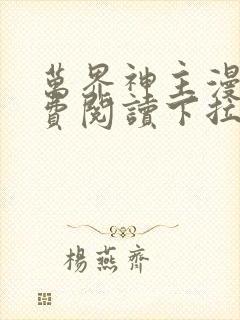 萬界神主漫
費閱讀下拉
楊燕齊